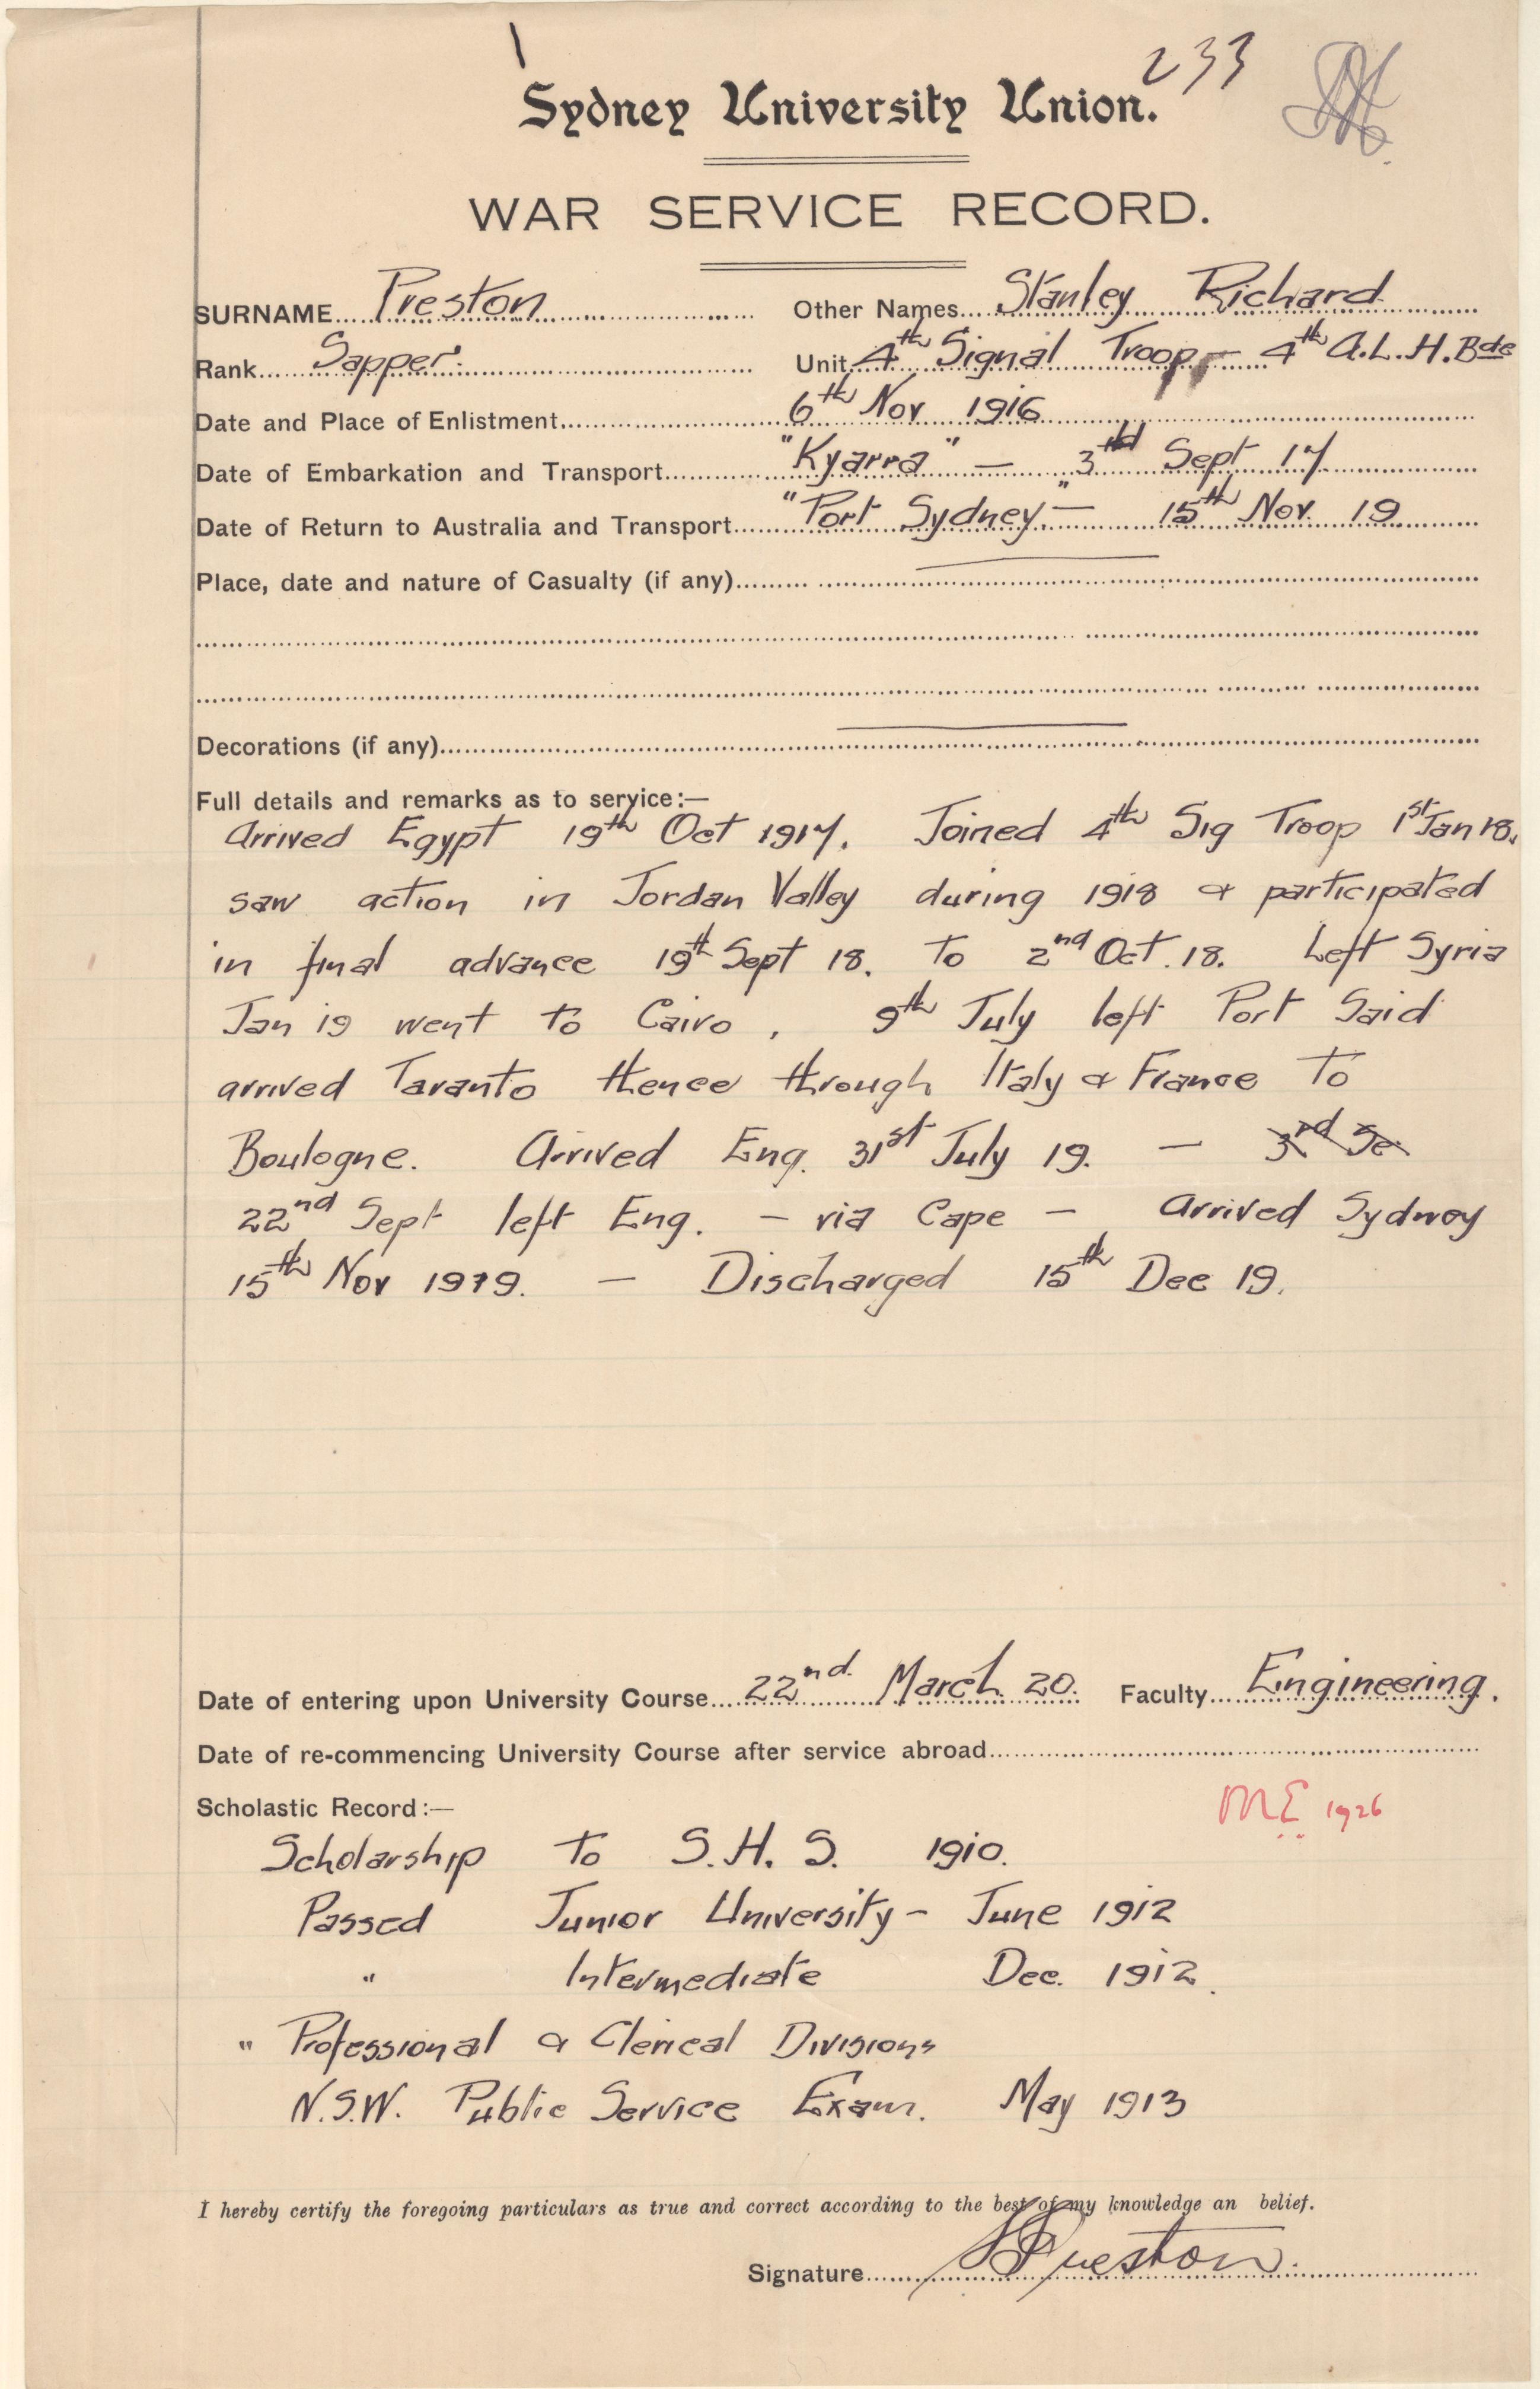 233
Sydney University Union.
WAR SERVICE RECORD.
SURNAME.... Preston Other Names.... Stanley Richard
Rank.... Sapper. Unit. 4th Signal Troop - 4th A.L.H. Bde
Date and Place of Enlistment.... 6th Nov 1916
Date of Embarkation and Transport.... "Kyarra" — 3rd Sept 17
Date of Return to Australia and Transport.... "Port Sydney." — 15th Nov. 19
Place, date and nature of Casualty (if any).... —
Decorations (if any).... —
Full details and remarks as to service:—
Arrived Egypt 19th Oct 1917. Joined 4th Sig Troop 1st Jan 18.
saw action in Jordan Valley during 1918 & participated
in final advance 19th Sept 18. to 2nd Oct. 18. Left Syria
Jan 19 went to Cairo, 9th July left Port Said
arrived Taranto thence through Italy & France to
Boulogne. Arrived Eng. 31st July 19. — 3rd Se
22nd Sept left Eng. — via Cape — Arrived Sydney
15th Nov 1919. — Discharged 15th Dec 19.
Date of entering upon University Course.... 22nd. March 20. Faculty.... Engineering.
Date of re-commencing University Course after service abroad....
Scholastic Record:— M.E. 1926
Scholarship to S.H.S. 1910.
Passed Junior University - June 1912
" Intermediate Dec. 1912.
" Professional & Clerical Divisions
N.S.W. Public Service Exam. May 1913
I hereby certify the foregoing particulars as true and correct according to the best of my knowledge an belief.
Signature.... SRPreston.